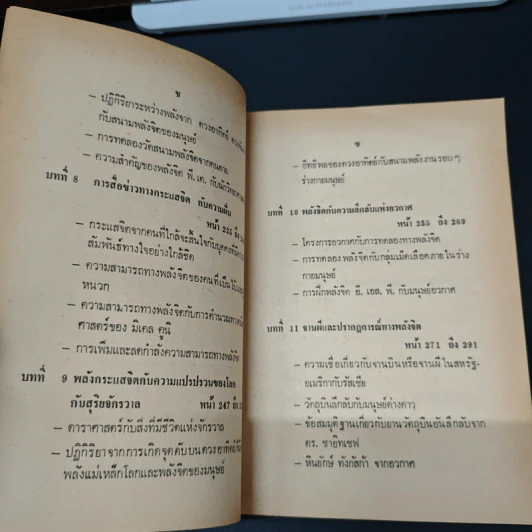 ช
– ปฏิกิริยาระหว่างพลังจาก ดวงอาทิตย์
กับสนามพลังจิตของมนุษย์
– การทดลองวัดสนามพลังจิตจากคนตาย
– ความสำคัญของพลังจิต พี. เค. กับนักวิทยา
บทที่ 8 การสื่อข่าวทางกระแสจิต กับความฝัน
หน้า 225 ถึง
– กระแสจิตจากคนที่ใกล้จะสิ้นใจกับบุคคลที่มีความ
สัมพันธ์ทางใจอย่างใกล้ชิด
– ความสามารถทางพลังจิตของคนที่เป็นใบ้และ
หนวก
– ความสามารถทางพลังจิตกับการคำนวณทาง
ศาสตร์ของ มิเคล คูนิ
– การเพิ่มและลดกำลังความสามารถทางพลังจิต
บทที่ 9 พลังกระแสจิตกับความแปรปรวนของโลก
กับสุริยจักรวาล หน้า 247 ถึง
– ดาราศาสตร์กับสิ่งที่มีชีวิตแห่งจักรวาล
– ปฏิกิริยาจากการเกิดจุดดับบนดวงอาทิตย์กับ
พลังแม่เหล็กโลกและพลังจิตของมนุษย์
ซ
– อิทธิพลของดวงอาทิตย์กับสนามพลังงานรอบๆ
ร่างกายมนุษย์
บทที่ 10 พลังจิตกับความลึกลับแห่งอวกาศ
หน้า 255 ถึง 269
– โครงการอวกาศกับการทดลองทางพลังจิต
– การทดลองพลังจิตกับกลุ่มเม็ดเลือดภายในร่าง
กายมนุษย์
– การฝึกพลังจิต อี. เอส. พี. กับมนุษย์อวกาศ
บทที่ 11 จานผีและปรากฏการณ์ทางพลังจิต
หน้า 271 ถึง 291
– ความเชื่อเกี่ยวกับจานบินหรือจานผีในสหรัฐ-
อเมริกากับรัสเซีย
– วัตถุบินลึกลับกับมนุษย์ต่างดาว
– ข้อสมมุติฐานเกี่ยวกับยานวัตถุบินอันลึกลับจาก
ดร. ซายิทเซฟ
– หินยักษ์ ทังกัสก้า จากอวกาศ